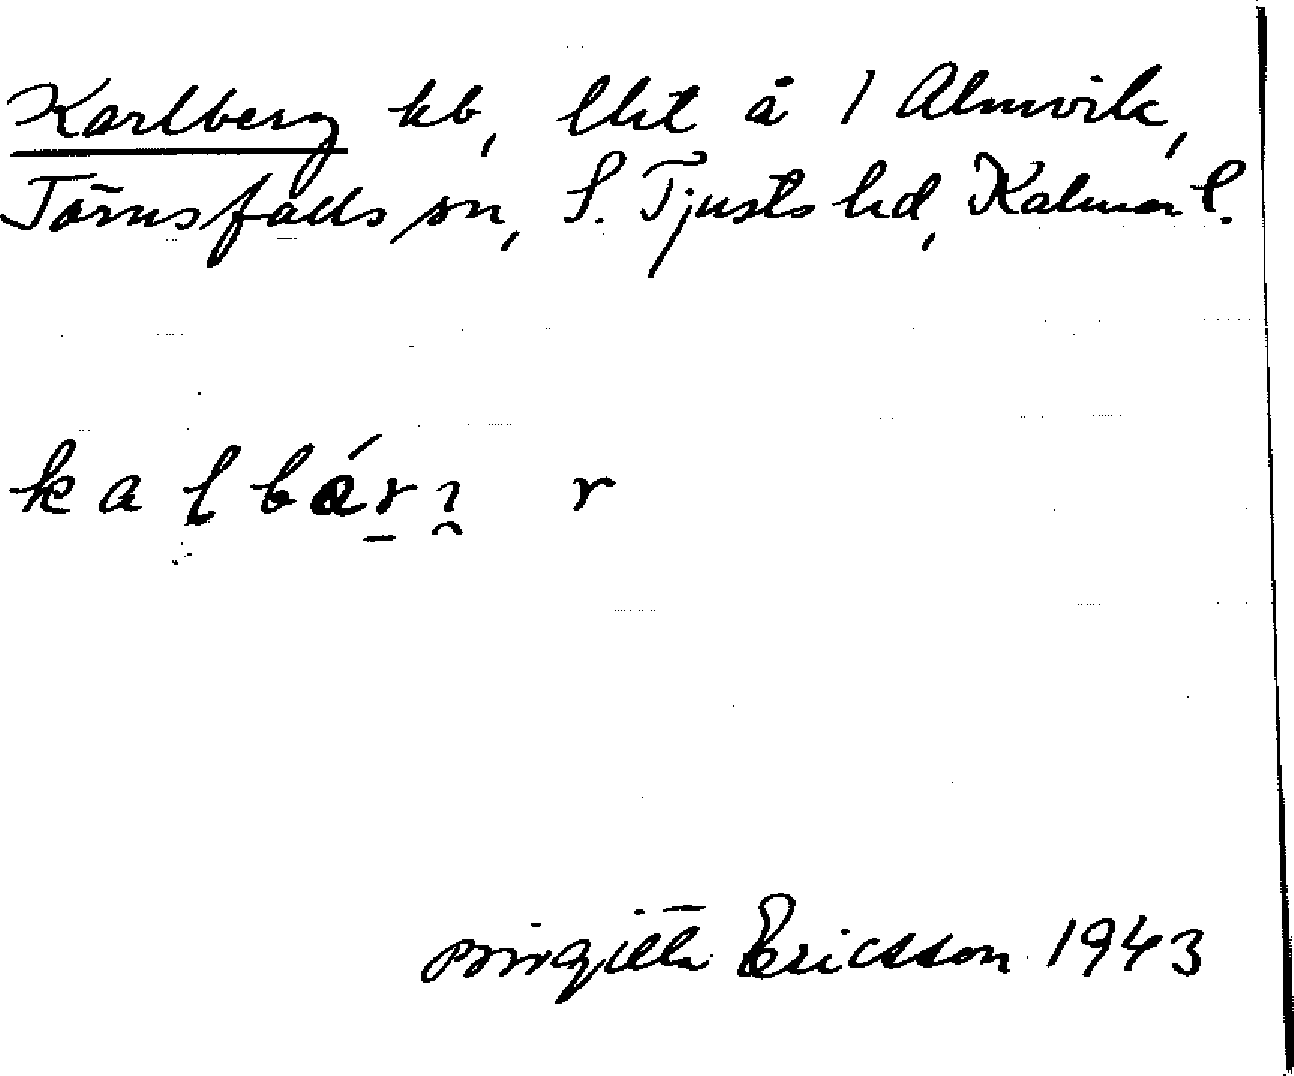 Karlberg hb, lht å 1 Almvik,
Törnsfalls sn, S. Tjusts hd, Kalmar l.
Birgitta Ericsson 1943